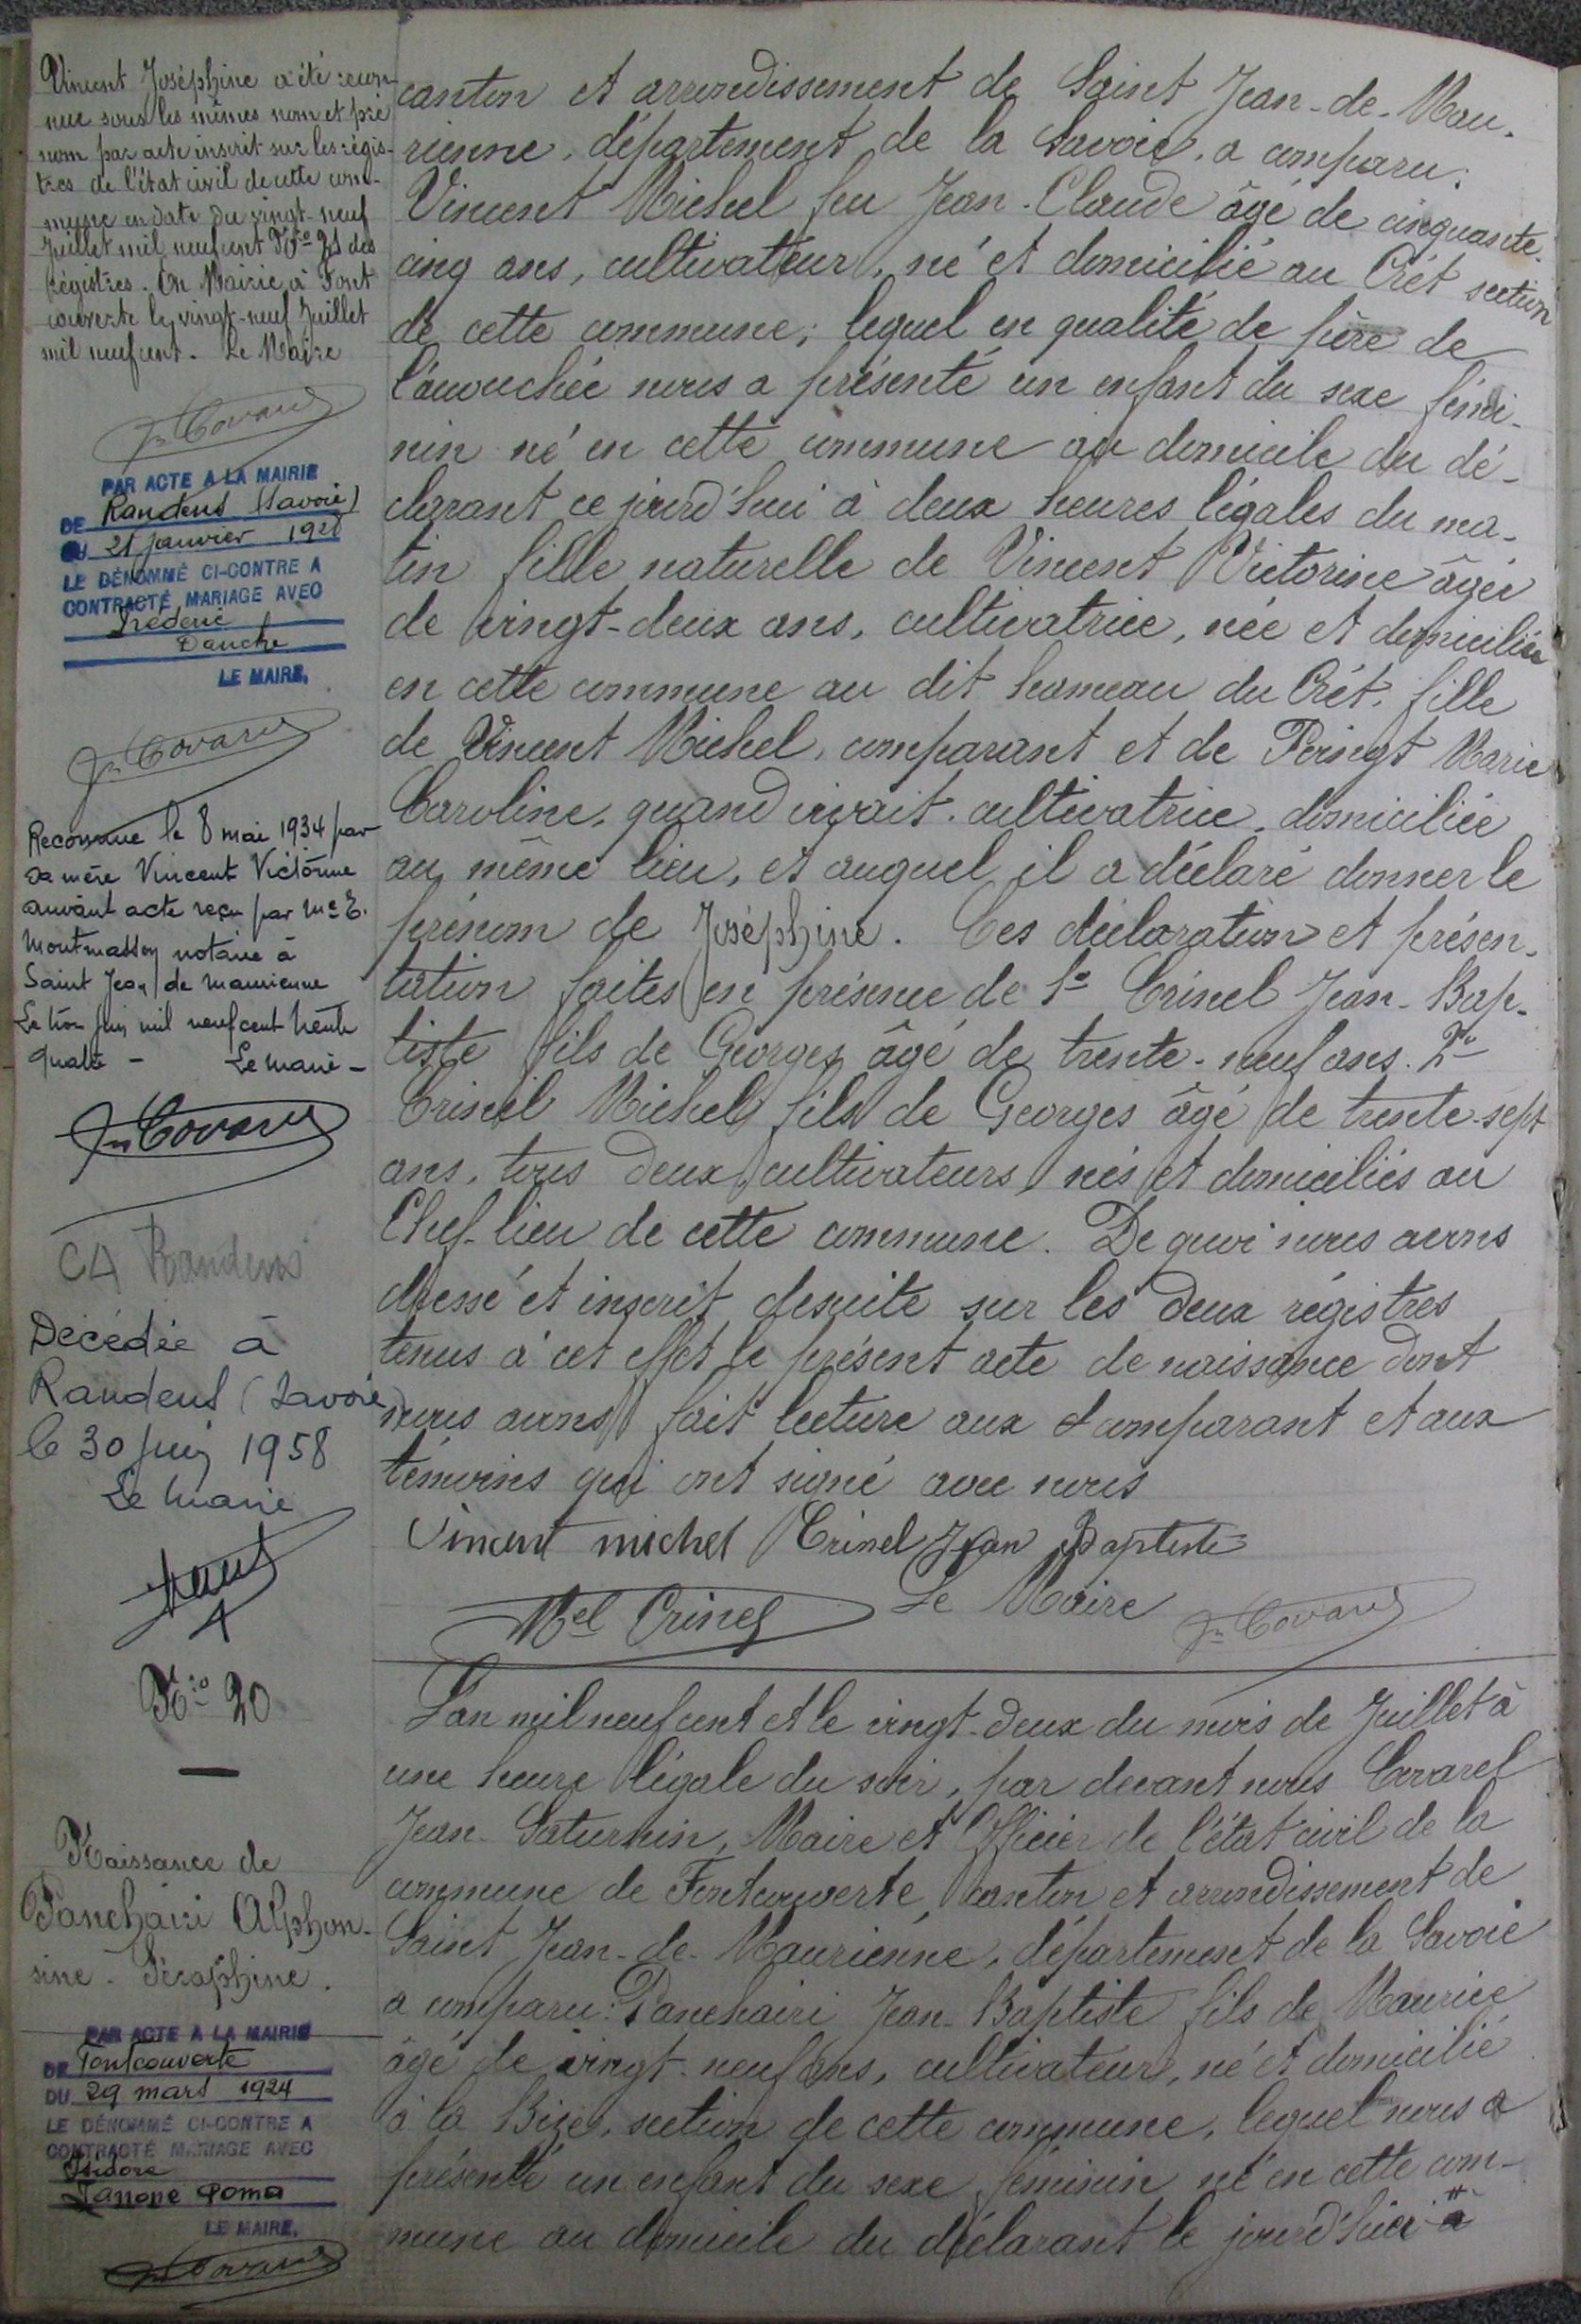 Vincent Joséphine a été recon-
nue sous les mêmes nom et pré
nom par acte inscrit sur les régis-
tres de l'état civil de cette com-
mune en date du vingt-neuf
Juillet mil neufcent No 21 des
régistres. En Mairie à Font
couverte le vingt-neuf Juillet
mil neufcent. Le Maire
Jn Covarel
PAR ACTE A LA MAIRIE
DE Randens (Savoie)
DU 21 janvier 1928
LE DÉNOMMÉ CI-CONTRE A
CONTRACTÉ MARIAGE AVEC
Fréderic
Danche
LE MAIRE,
Jn Covarel
Reconnue le 8 mai 1934 par
sa mère Vincent Victorine
suivant acte reçu par Me E.
Montmasson notaire à
Saint Jean de Maurienne
Le trois juin mil neuf cent trente
quatre - Le maire -
Jn Covarel
CA Randens
Décédée à
Randens (Savoie)
le 30 juin 1958
Le maire
canton et arrondissement de Saint Jean-de-Mau-
rienne, département de la Savoie, a comparu:
Vincent Michel feu Jean-Claude âgé de cinquante-
cinq ans, cultivateur, né et domicilié au Crêt section
de cette commune; lequel en qualité de père de
l'accouchée nous a présenté un enfant du sexe fémi-
nin né en cette commune au domicile du dé-
clarant ce jourd'hui à deux heures légales du ma-
tin fille naturelle de Vincent Victorine âgée
de vingt-deux ans, cultivatrice, née et domiciliée
en cette commune au dit hameau du Crêt, fille
de Vincent Michel, comparant et de Poingt Marie
Caroline, quand vivait cultivatrice, domiciliée
au même lieu, et auquel il a déclaré donner le
prénom de Joséphine. Ces déclaration et présen-
tation faites en présence de 1o Crinel Jean-Bap-
tiste fils de Georges âgé de trente-neuf ans. 2o
Crinel Michel fils de Georges âgé de trente-sept
ans, tous deux cultivateurs, nés et domiciliés au
Chef-lieu de cette commune. De quoi nous avons
dressé et inscrit desuite sur les deux régistres
tenus à cet effet le présent acte de naissance dont
nous avons fait lecture aux comparant et aux
témoins qui ont signé avec nous
Vincent michel Crinel Jean Baptiste
Mel Crinel Le Maire Jn Covarel
No 20
Naissance de
Panchairi Alphon-
sine-Séraphine.
PAR ACTE A LA MAIRIE
DE Fontcouverte
DU 29 mars 1924
LE DÉNOMMÉ CI-CONTRE A
CONTRACTÉ MARIAGE AVEC
Isidore
LE MAIRE,
Jn Covarel
L'an mil neuf cent et le vingt-deux du mois de Juillet à
une heure légale du soir, par devant nous Covarel
Jean-Saturnin, Maire et Officier de l'état civil de la
commune de Fontcouverte, canton et arrondissement de
Saint Jean-de-Maurienne, département de la Savoie
a comparu: Panchairi Jean-Baptiste fils de Maurice
âgé de vingt-neuf ans, cultivateur, né et domicilié
à la Bise, section de cette commune, lequel nous a
présenté un enfant du sexe féminin né en cette com-
mune au domicile du déclarant le jourd'hui à